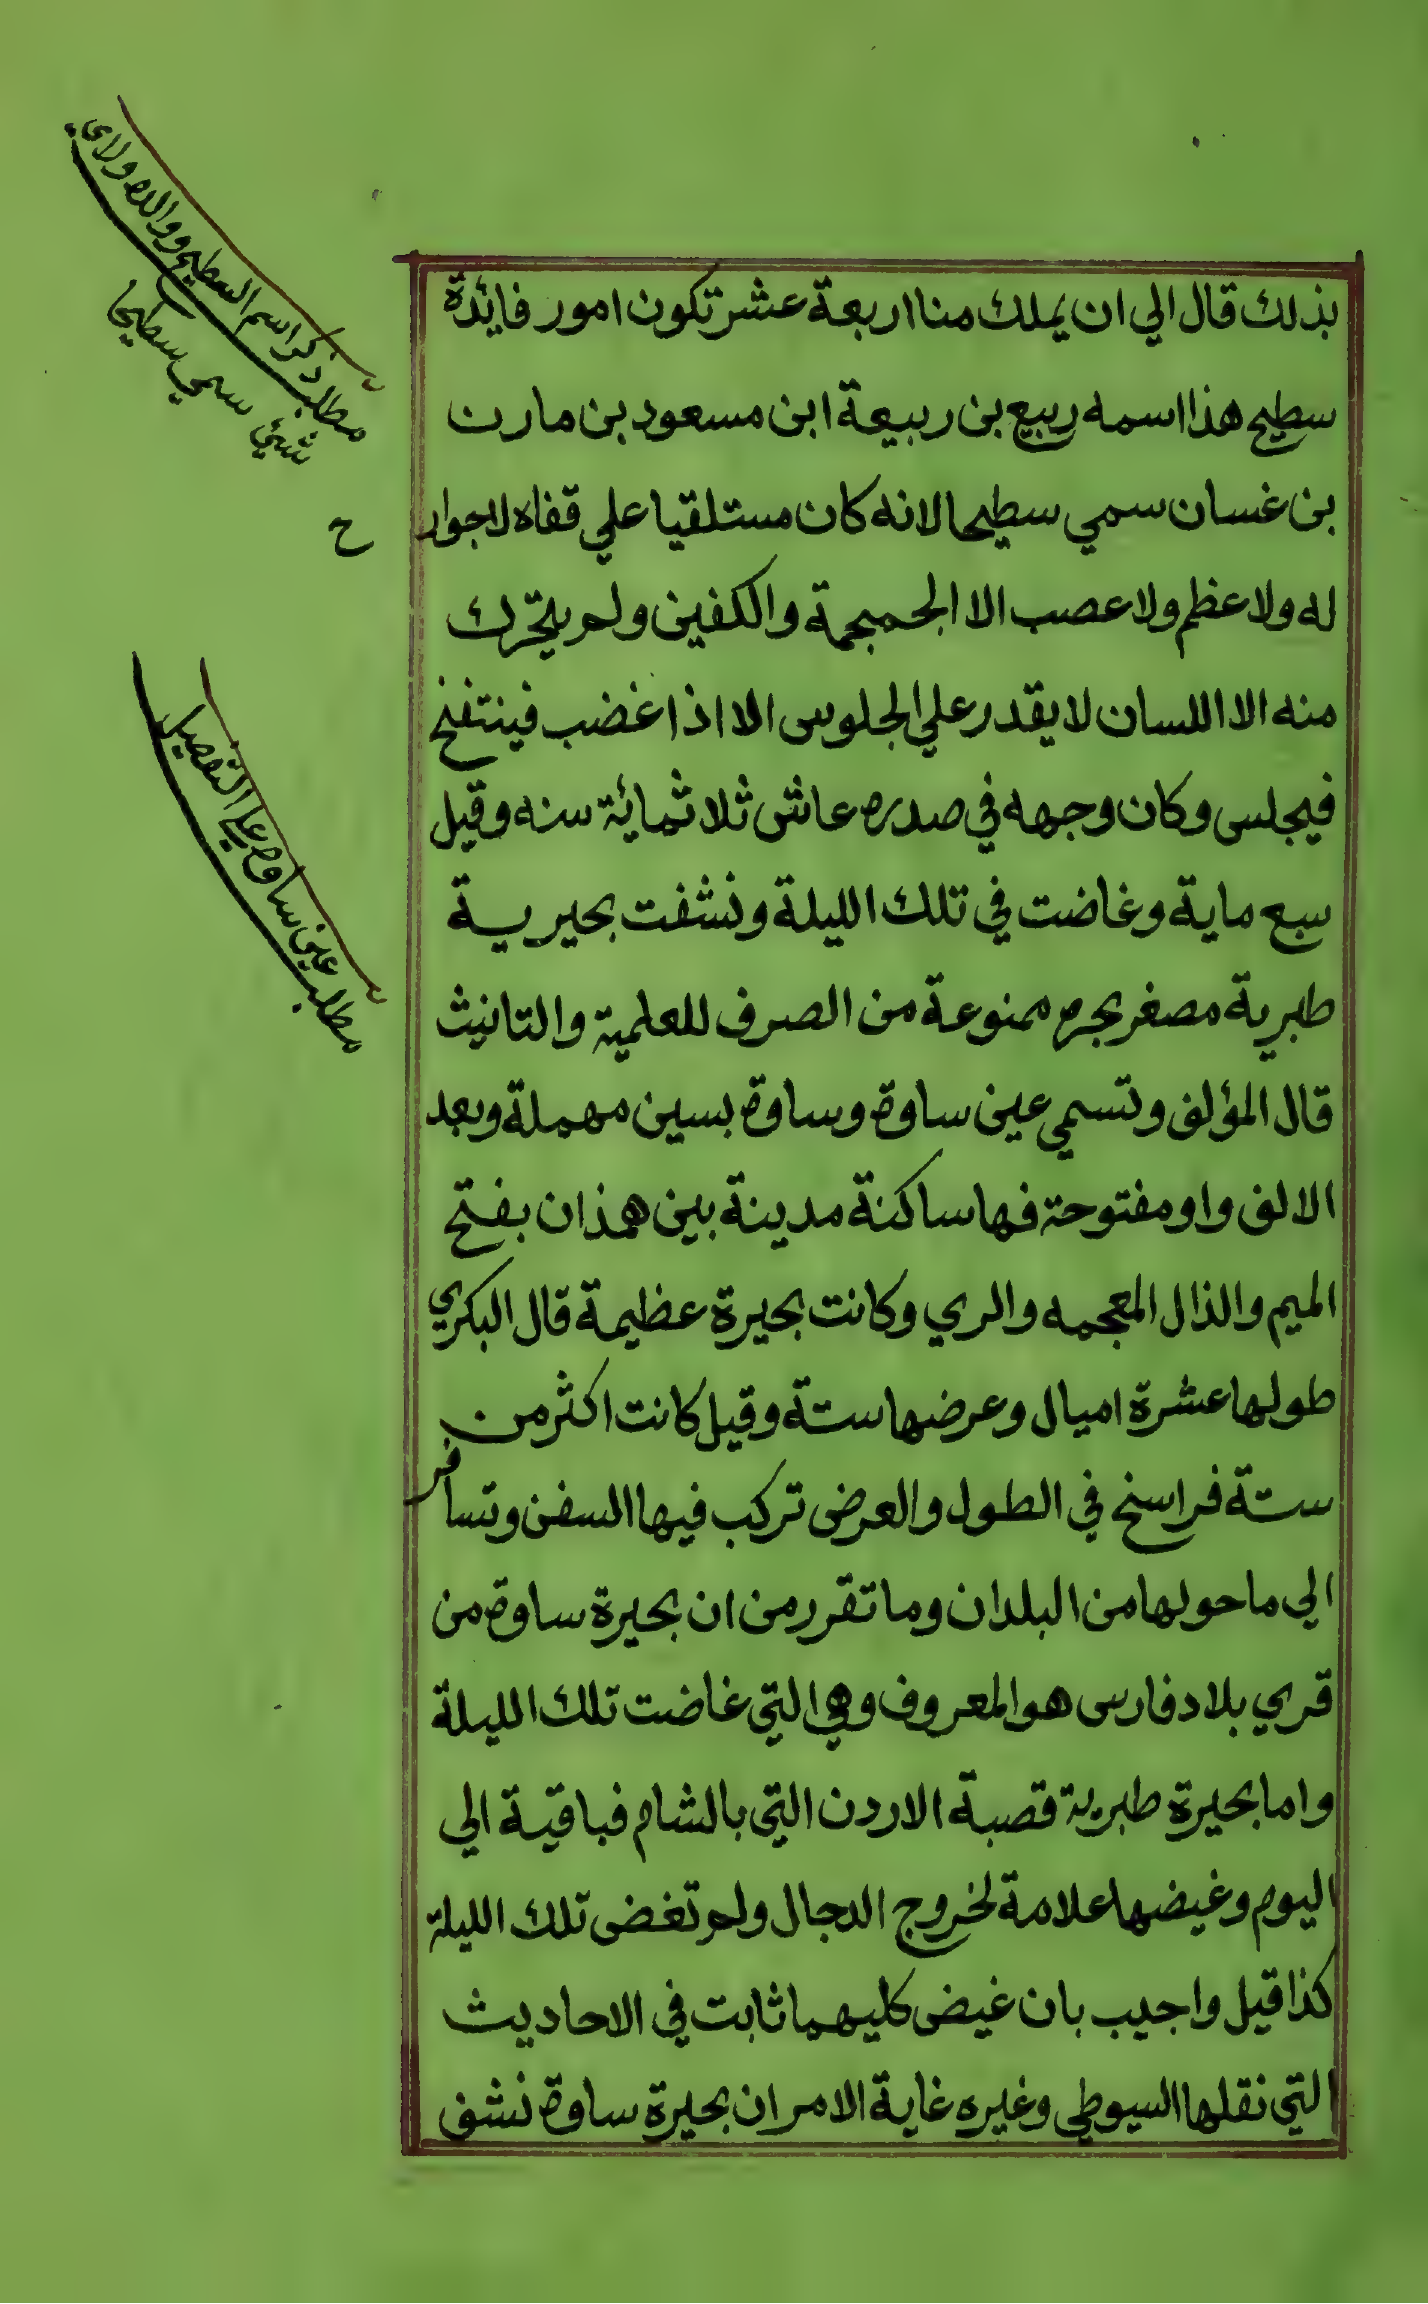 بذلك قال الي ان يملك منا اربعة عشر تكون امور فائدة
سطيح هذا اسمه ربيع بن ربيعة ابن مسعود بن مازن
بن غسان سمي سطيحا لانه كان مستلقيا علي قفاه لاجوار
له ولا عظم ولا عصب الا الجمجمة والكفين ولم يتحرك
منه الا اللسان لا يقدر علي الجلوس الا اذا غضب فينتفخ
فيجلس وكان وجهه في صدره عاش ثلاثمائة سنه وقيل
سبع ماية وغاضت في تلك الليلة ونشفت بحيرية
طبرية مصغر بحر ممنوعة من الصرف للعلمية والتانيث
قال المؤلف وتسمي عين ساوة وساوة بسين مهملة وبعد
الالف واو مفتوحة فها ساكنة مدينة بين همذان بفتح
الميم والذال المعجمه والري وكانت بحيرة عظيمة قال البكري
طولها عشرة اميال وعرضها ستة وقيل كانت اكثر من
ستة فراسخ في الطول والعرض تركب فيها السفن وتسافر
الي ما حولها من البلدان وما تقرر من ان بحيرة ساوة من
قري بلاد فارس هو المعروف وهي التي غاضت تلك الليلة
واما بحيرة طبرية قصبة الاردن التي بالشام فباقية الي
اليوم وغيضها علامة لخروج الدجال ولم تغض تلك الليلة
كذا قيل واجيب بان غيض كليهما ثابت في الاحاديث
التي نقلها السيوطي وغيره غاية الامر ان بحيرة ساوة نشف
مطلب ذكر اسم السطيح ووالده ولاي
شيئ سمي سطيحا
ح
مطلب عين ساوه علي التفصيل